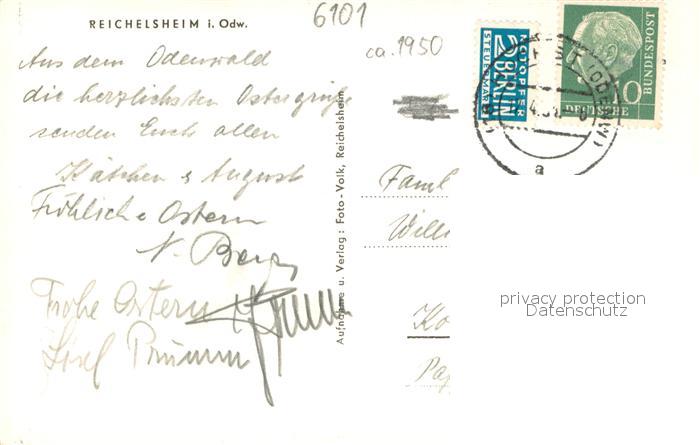 REICHELSHEIM i. Odw.
6101
ca. 1950
Aus dem Odenwald
die herzlichsten Ostergrüße
senden Euch allen
Kätchen & August
Fröhliche Ostern
N. Berg
Frohe Ostern
Lisel Prumm
Aufnahme u. Verlag: Foto-Volk, Reichelsheim
NOTOPFER
2 BERLIN
STEUERMARKE
DEUTSCHE
BUNDESPOST
10
(ODENW)
a
Faml
Will
Ko
Pap
privacy protection
Datenschutz